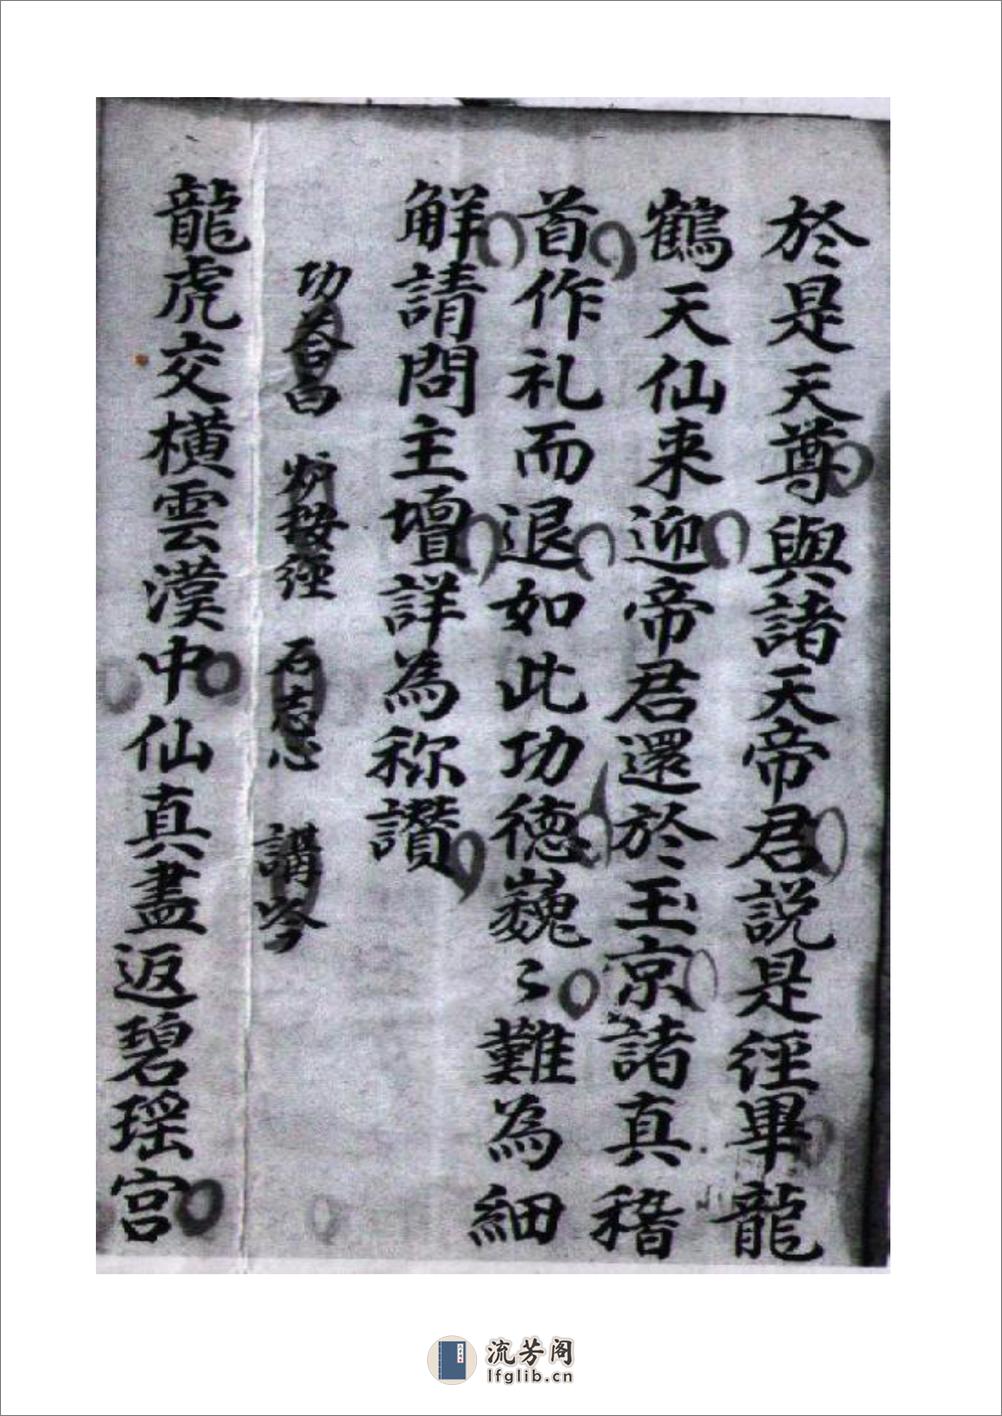 於是天尊與諸天帝君説是經畢龍
鶴天仙来迎帝君還於玉京諸真稽
首作礼而退如此功德巍〻難為細
解請問主壇詳為称讃
功荅白 炉按經 石志心 講岑
龍虎交橫雲漢中仙真盡返碧瑶宫
流芳阁
lfglib.cn